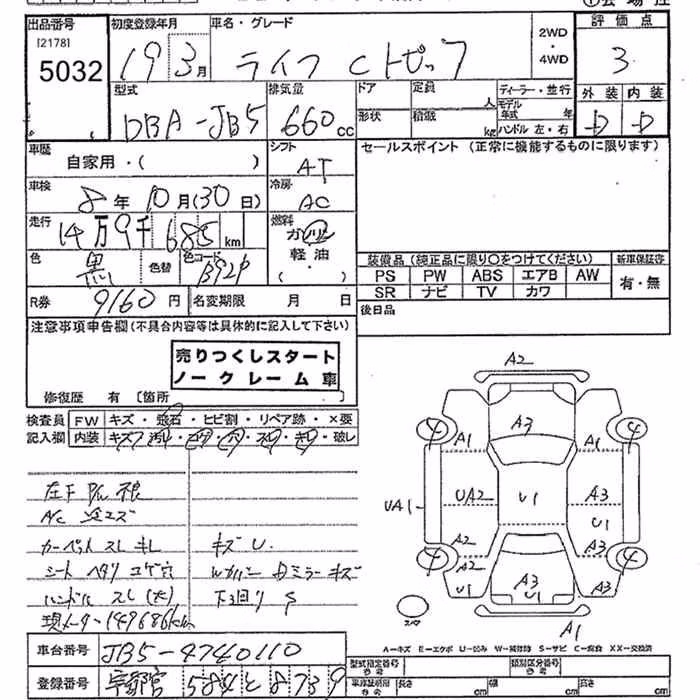 出品番号 初度登録年月 車名・グレード 2WD ・ 4WD 評価点
[2178]
5032
19 3月 ライフ C トピック 3
型式 排気量 ドア 定員 人 ディーラー・並行 外装 内装
DBA-JB5 660cc 形状 積載 kg モデル年式 年 ハンドル 左・右 D D
車歴 自家用・( ) シフト AT セールスポイント (正常に機能するものに限ります)
車検 8年10月(30日) 冷房 AC
走行 14万9千685km 燃料 ガソリン 軽油 ・( )
色 黒 色替 色コード B92P
装備品 (純正品に限り〇をつけてください) 新車保証書
PS PW ABS エアB AW 有・無
SR ナビ TV カワ
R券 9160円 名変期限 月 日 後日品
注意事項申告欄 (不具合内容等は具体的に記入して下さい)
売りつくしスタート
ノークレーム車
修復歴 有 [箇所
検査員記入欄 FW キズ・飛石・ヒビ割・リペア跡・×要
内装 キズ・汚れ・コゲ・穴・スレ・キレ・破レ
A/C
カーペット スレ キレ キズ U
シート ヘタリ コゲ穴 ミラー キズ
ハンドル スレ(大) 下回り S
現メーター149686km
A2
A3
4 A1 A1 4
UA1 UA2 U1 A3
U1
A2 A3
4 A2 U1 A3 U1 A3 U1 4
スペア
A1
A=キズ E=エクボ U=凹み W=補修跡 S=サビ C=腐食 XX=交換済
車台番号 JB5-4740110
登録番号 宇都宮 584 と 8739
型式指定番号 参考 類別区分番号 参考
車庫証明用 参考 長さ cm 幅 cm 高さ cm